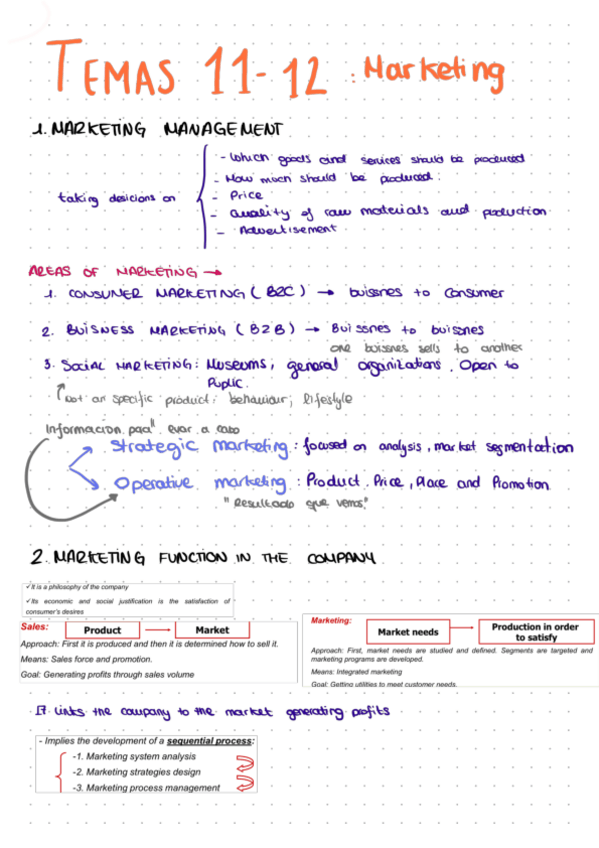 TEMAS 11-12: Marketing
1. MARKETING MANAGEMENT
taking desicions on
- Which goods and services should be produced
- How much should be produced.
- Price
- Quality of raw materials and production
- Advertisement
AREAS OF MARKETING →
1. CONSUMER MARKETING (B2C) → buissnes to consumer
2. BUISNESS MARKETING (B2B) → Buissnes to buissnes
one buissnes sells to another
3. SOCIAL MARKETING: Museums, general organizations. Open to
Public.
Not an specific product: behaviour, lifestyle
Informacion para llevar a cabo
Strategic marketing: focused on analysis, market segmentation
Operative marketing: Product, Price, Place and Promotion
"Resultado que vemos"
2. MARKETING FUNCTION IN THE COMPANY
✓It is a philosophy of the company
✓Its economic and social justification is the satisfaction of
consumer's desires
Sales:
Product → Market
Approach: First it is produced and then it is determined how to sell it.
Means: Sales force and promotion.
Goal: Generating profits through sales volume
Marketing:
Market needs → Production in order
to satisfy
Approach: First, market needs are studied and defined. Segments are targeted and
marketing programs are developed.
Means: Integrated marketing
Goal: Getting utilities to meet customer needs.
- It links the company to the market generating profits
- Implies the development of a sequential process:
-1. Marketing system analysis
-2. Marketing strategies design
-3. Marketing process management